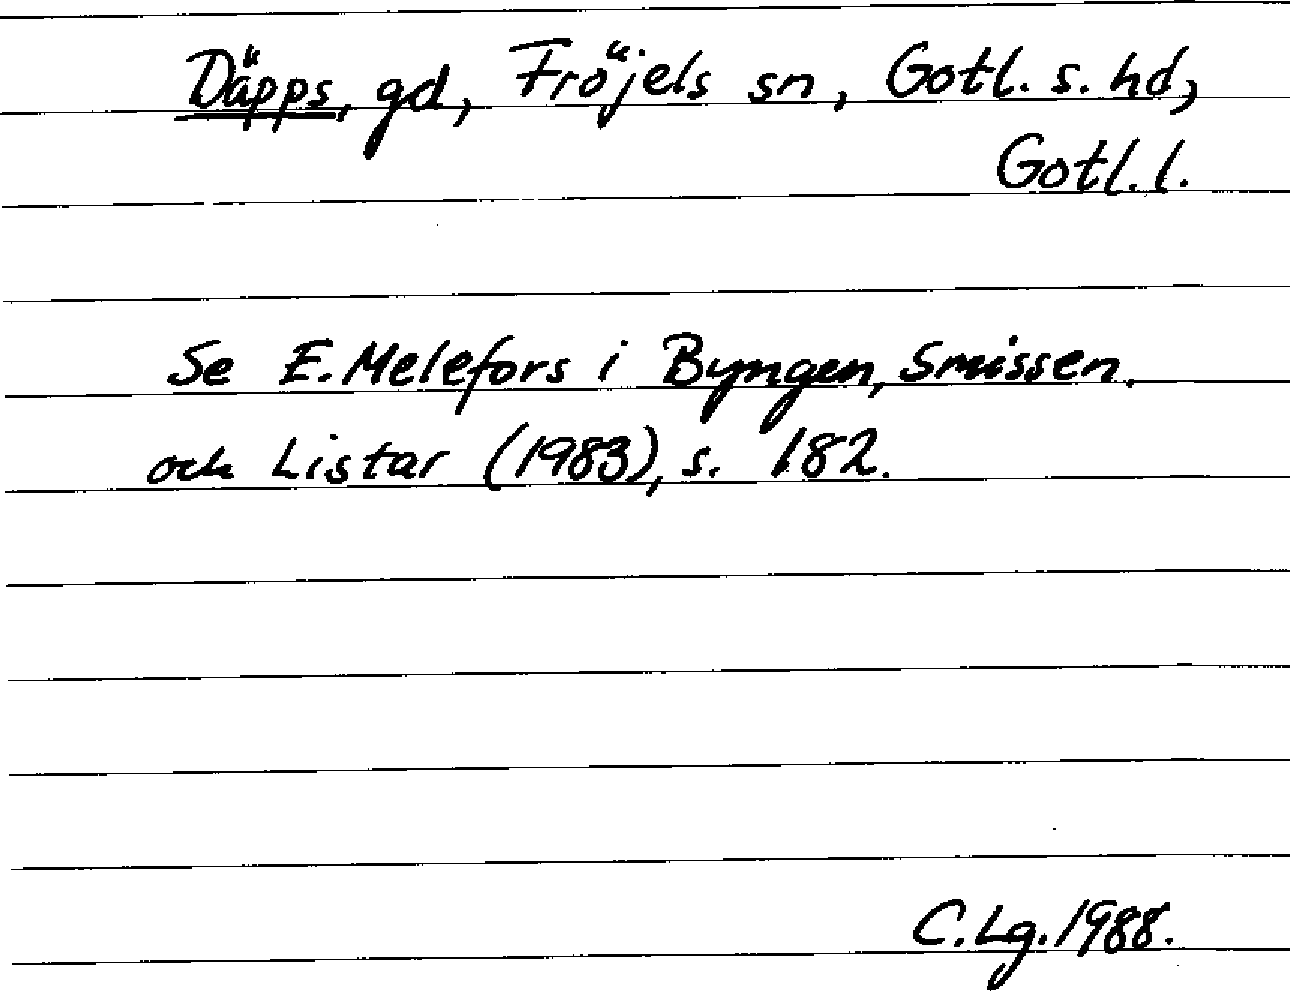 Däpps, gd, Fröjels sn, Gotl. s. hd,
Gotl. l.
Se E. Melefors i Byngen, Smissen.
och Listar (1983), s. 182.
C. Lg. 1988.